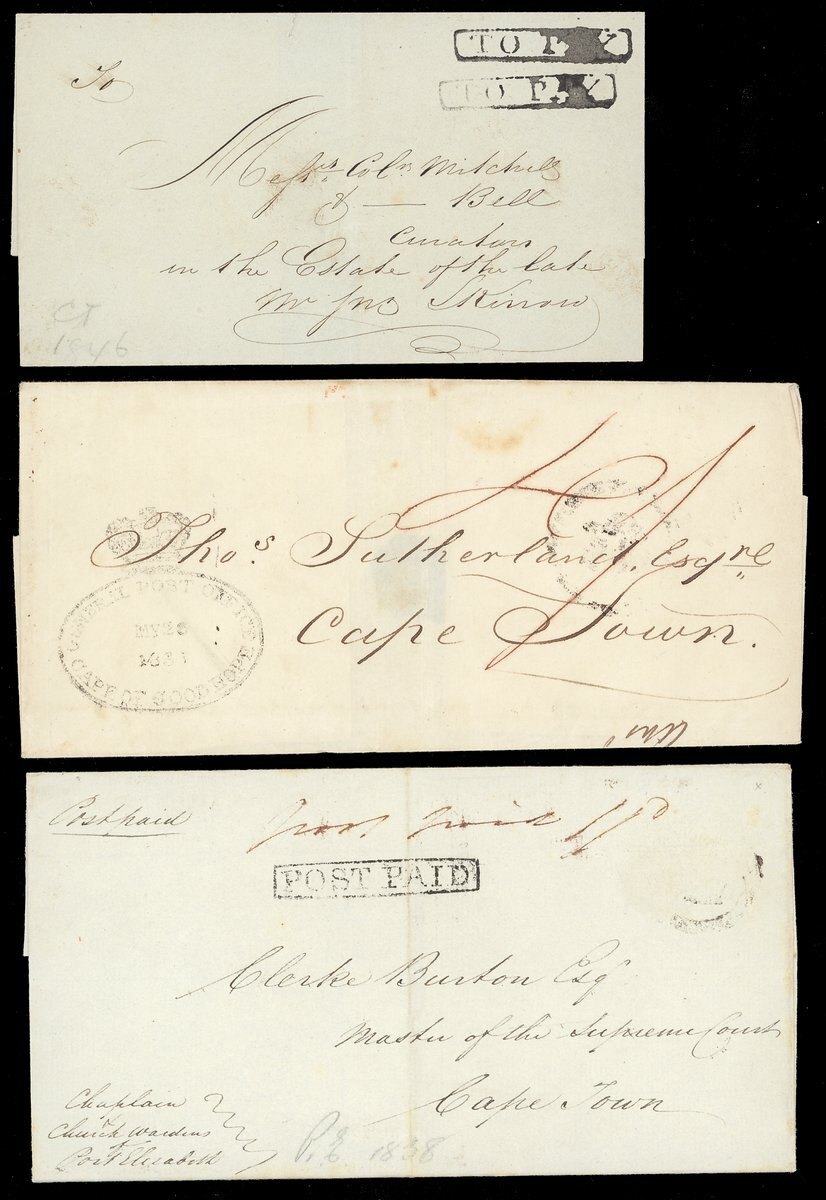 TO PAY
TO PAY
To
Messrs. Coln Mitchell
& — Bell
Curators
in the Estate of the late
Mr Jno Skirrow
CT
1846
Thos. Sutherland, Esqre
Cape Town.
GENERAL POST OFFICE
MY 26
CAPE OF GOOD HOPE
Postpaid
post paid 11d
POST PAID
Clerke Burton Esqr
Master of the Supreme Court
Cape Town
Chaplain
& Church Wardens
of
Port Elizabeth
P.E 1838